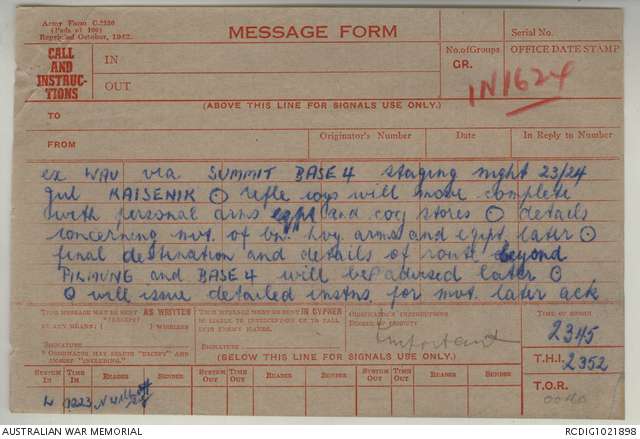 Army Form C.2130
(Pads of 100)
Reprinted October, 1942.
MESSAGE FORM
Serial No.
CALL
AND
INSTRUC-
TIONS
IN
OUT
No. of Groups
GR.
OFFICE DATE STAMP
IN1624
(ABOVE THIS LINE FOR SIGNALS USE ONLY.)
TO
FROM
Originator's Number
Date
In Reply to Number
ex WAU via SUMMIT BASE 4 staging night 23/24
Jul KAISENIK ⊙ rifle coys will move complete
with personal arms eqpt and coy stores ⊙ details
concerning mvt. of bn. hvy arms and eqpt. later ⊙
final destination and details of route beyond
and BASE 4 will be advised later ⊙
Q will issue detailed instns. for mvt. later ack
THIS MESSAGE MAY BE SENT AS WRITTEN
BY ANY MEANS
"EXCEPT"
WIRELESS
SIGNATURE
THIS MESSAGE MUST BE SENT IN CYPHER
SIGNATURE
ORIGINATOR'S INSTRUCTIONS
DEGREE OF PRIORITY
Important
TIME OF ORIGIN
2345
T.H.I. 2352
T.O.R.
(BELOW THIS LINE FOR SIGNALS USE ONLY.)
SYSTEM IN
TIME IN
READER
SENDER
SYSTEM OUT
TIME OUT
READER
SENDER
SYSTEM OUT
TIME OUT
READER
SENDER
AUSTRALIAN WAR MEMORIAL
RCDIG1021898